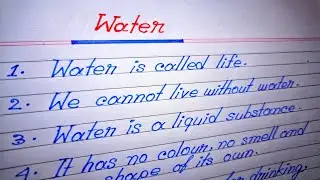 Water
1. Water is called life.
2. We cannot live without water.
3. Water is a liquid substance.
4. It has no colour, no smell and
shape of its own.
for drinking,